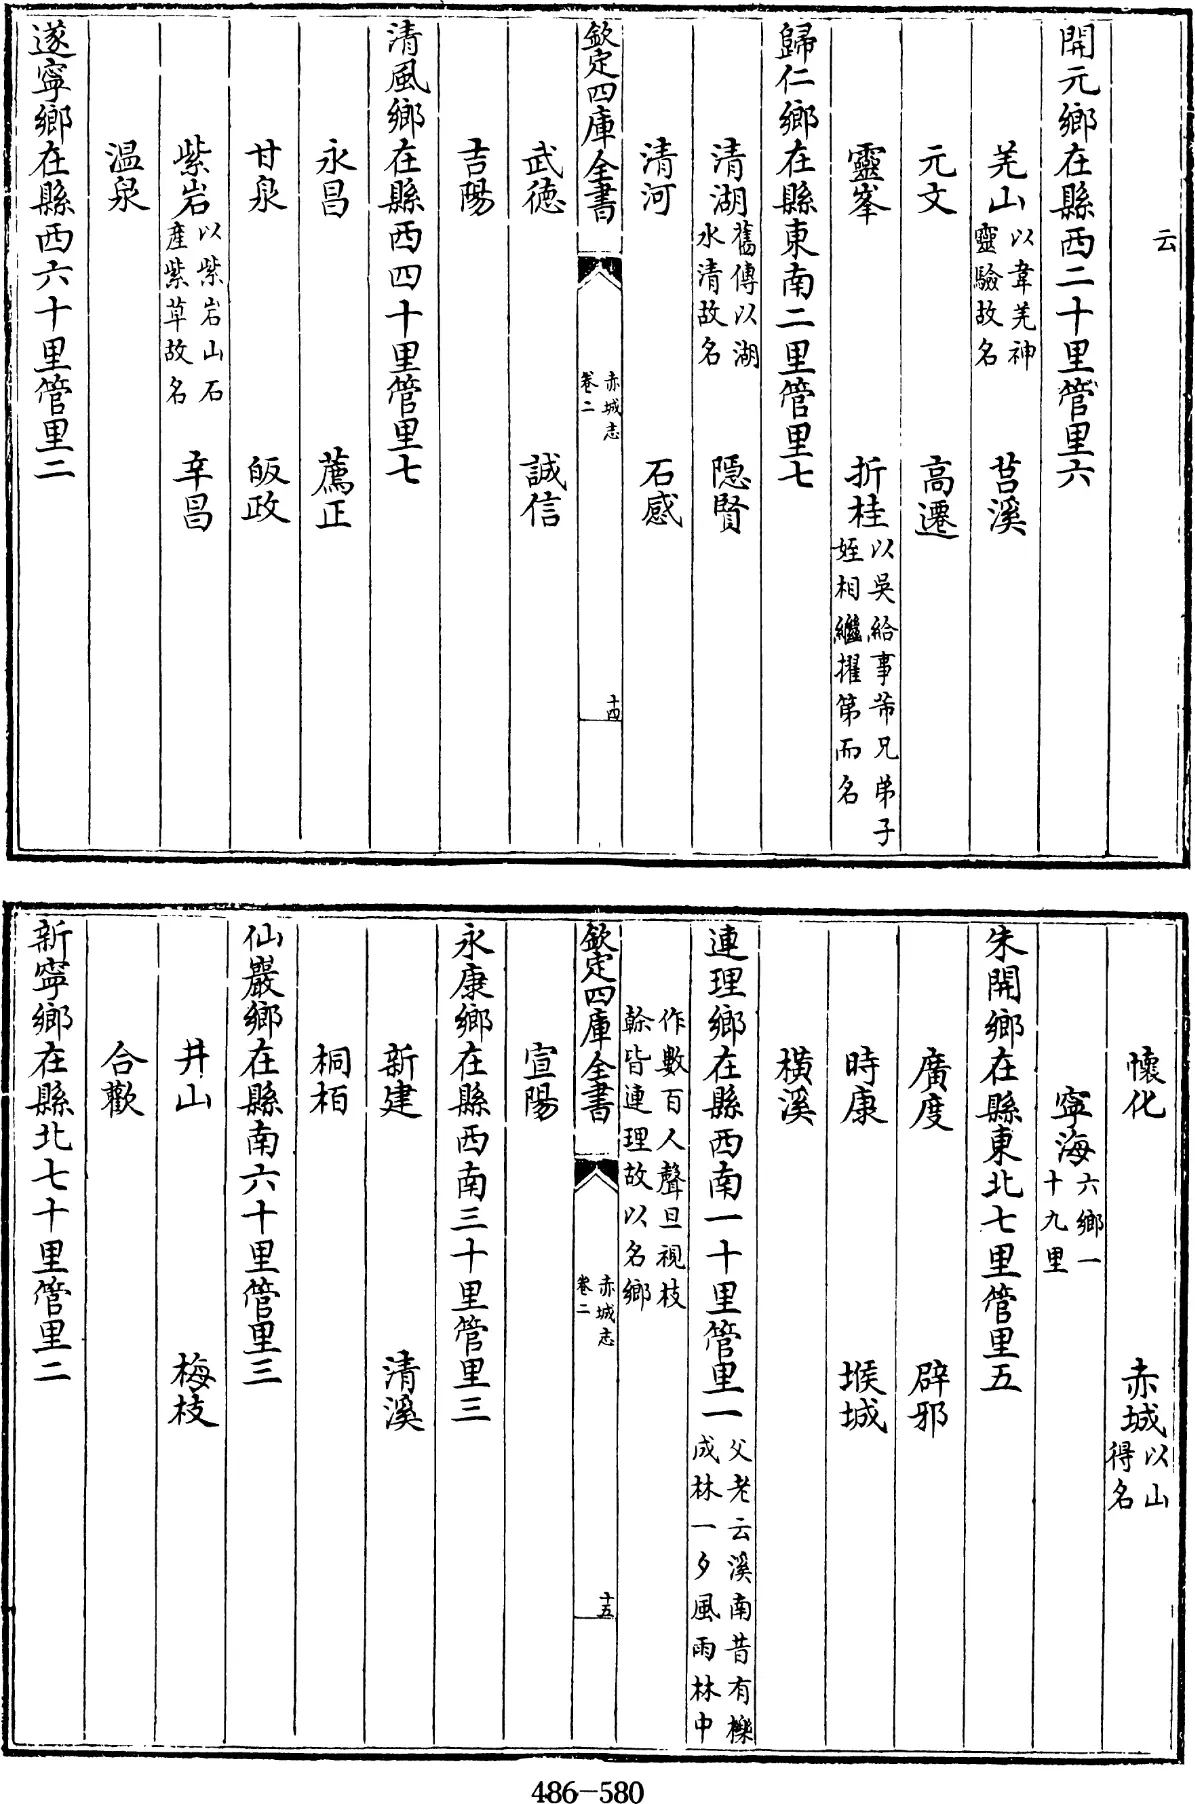 云
開元鄉在縣西二十里管里六
羌山以韋羌神靈驗故名　莒溪
元文　高遷
靈峯　折桂以吳給事芾兄弟子姪相繼擢第而名
歸仁鄉在縣東南二里管里七
清湖舊傳以湖水清故名　隠賢
清河　石感
欽定四庫全書　赤城志卷二　十四
武德　誠信
吉陽
清風鄉在縣西四十里管里七
永昌　薦正
甘泉　皈政
紫岩以紫岩山石産紫草故名　辛昌
温泉
遂寧鄉在縣西六十里管里二
懷化　赤城以山得名
寧海六鄉一十九里
朱開鄉在縣東北七里管里五
廣度　辟邪
時康　堠城
橫溪
連理鄉在縣西南一十里管里一父老云溪南昔有櫟成林一夕風雨林中
作數百人聲旦視枝榦皆連理故以名鄉
欽定四庫全書　赤城志卷二　十五
宣陽
永康鄉在縣西南三十里管里三
新建　清溪
桐栢
仙巖鄉在縣南六十里管里三
井山　梅枝
合歡
新寧鄉在縣北七十里管里二
486-580